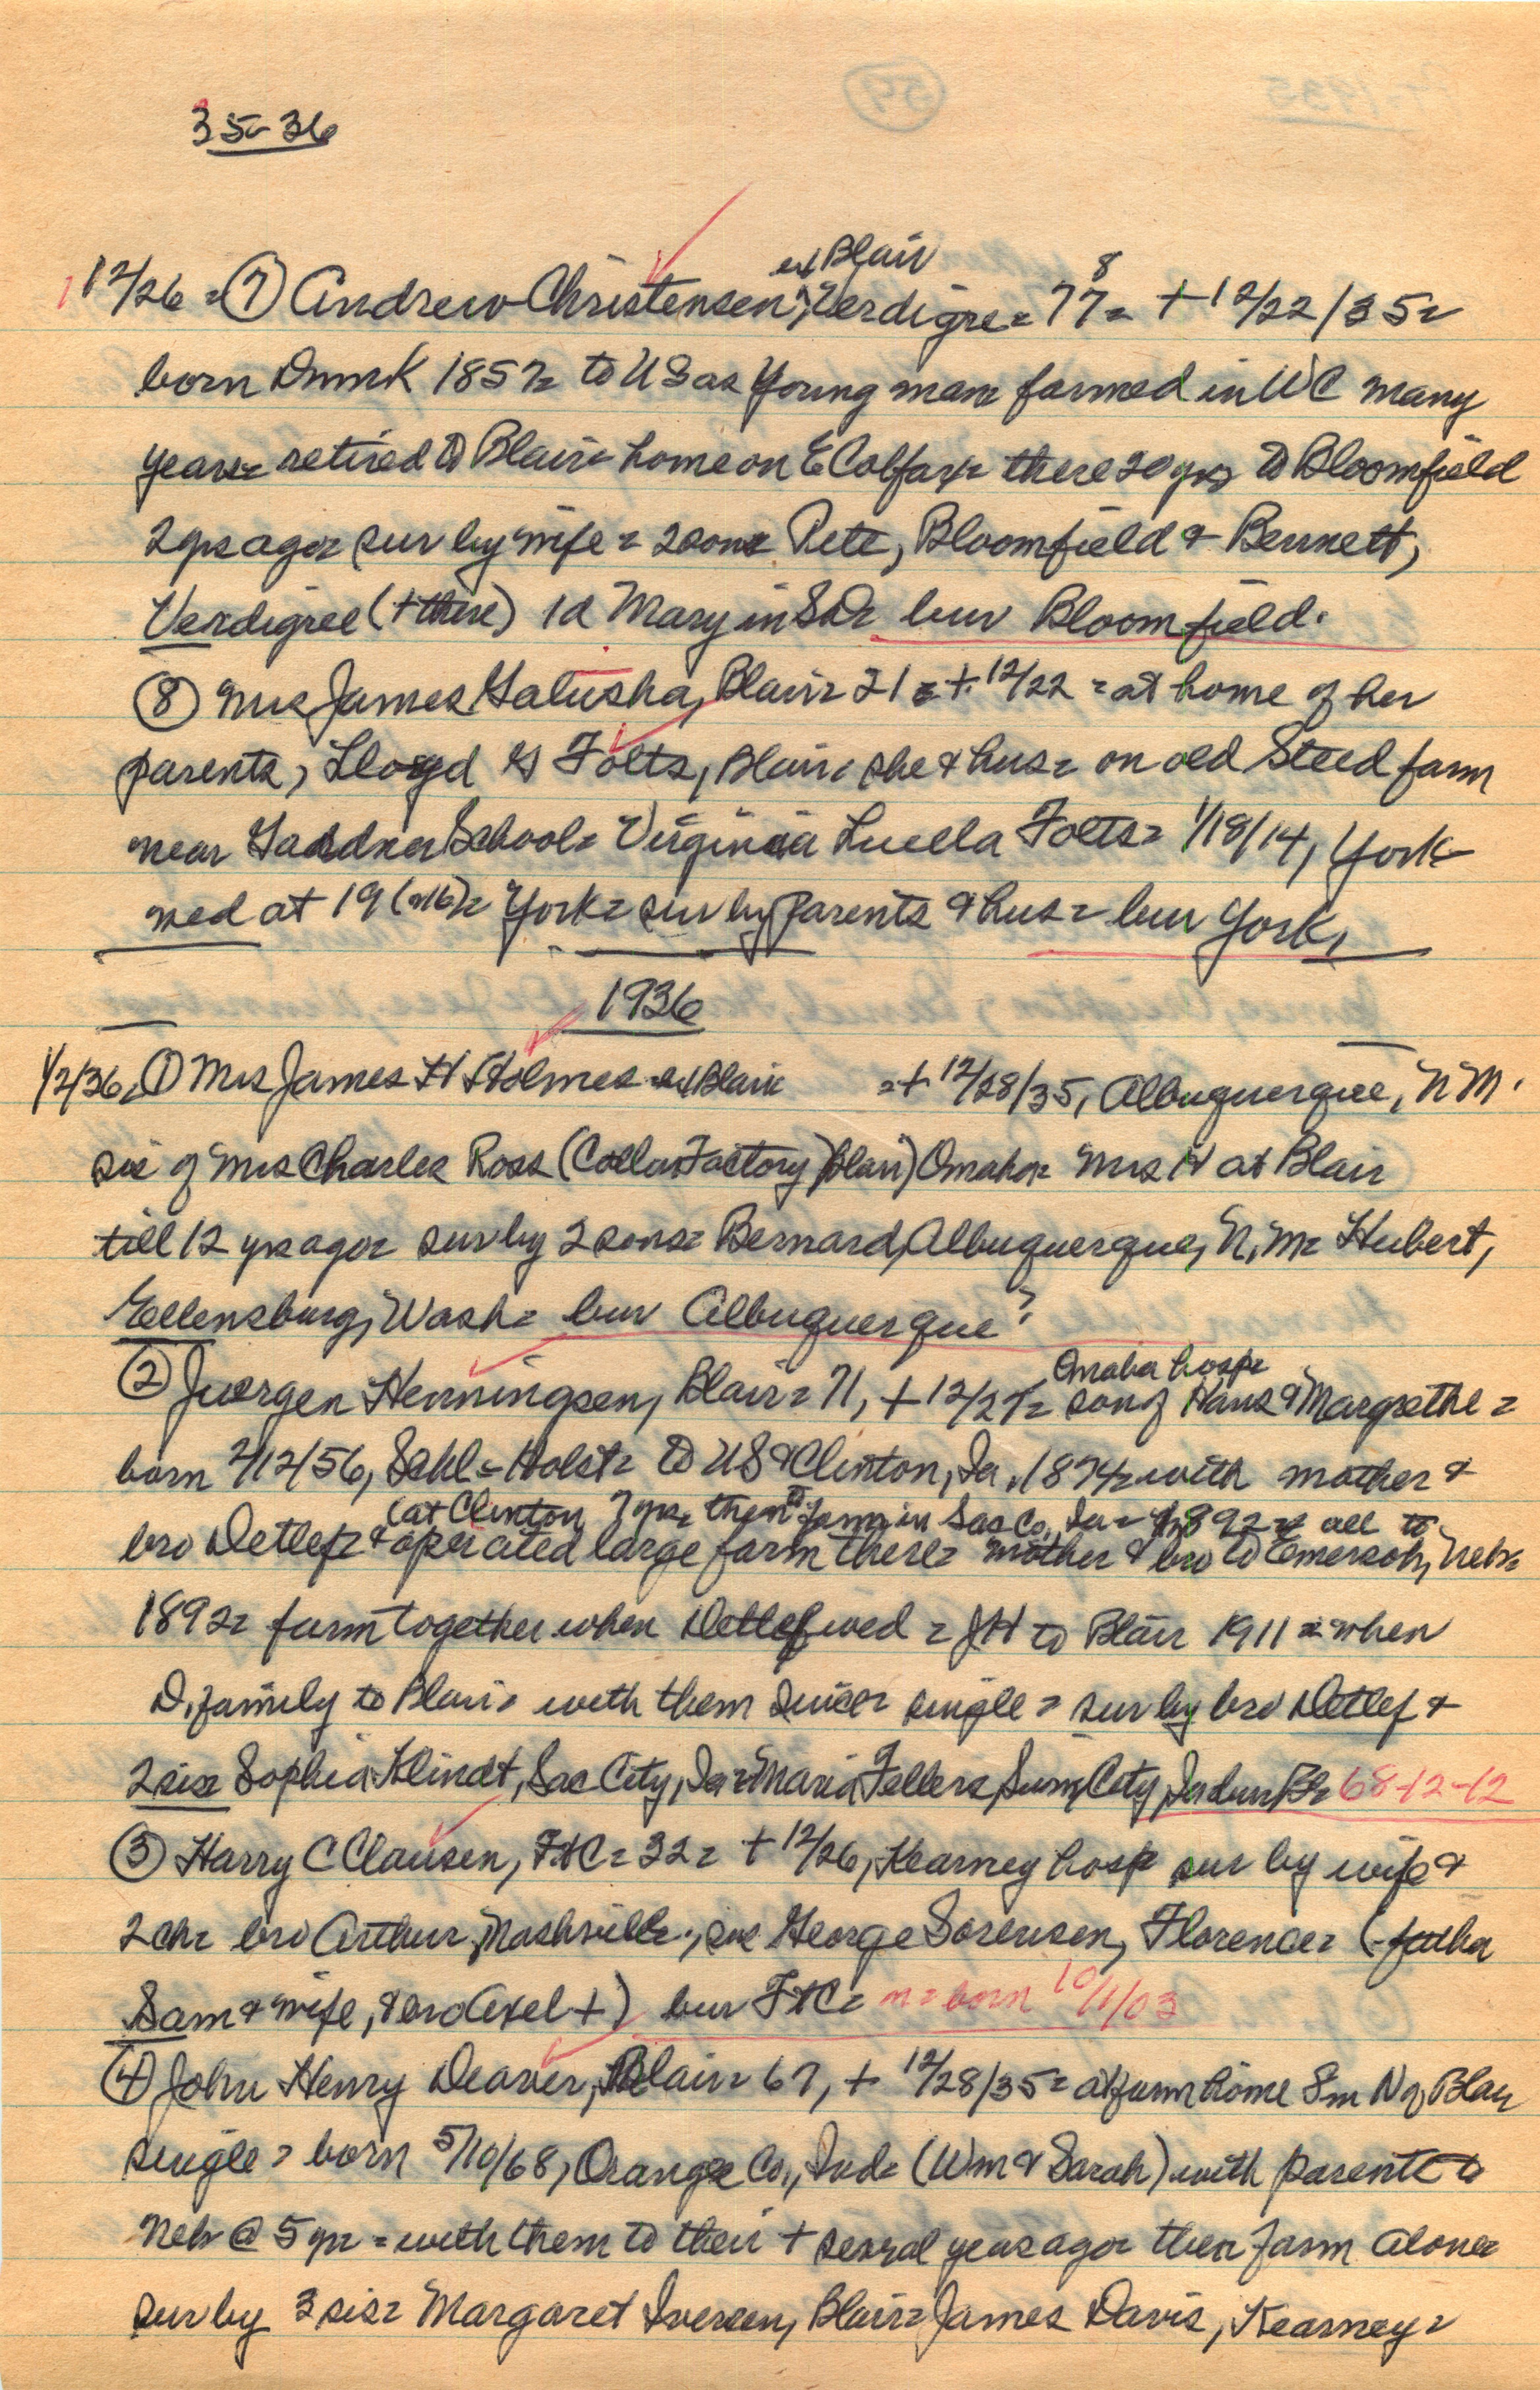 35-36
ex Blair 8
12/26 = (7) Andrew Christensen, Verdigre = 77 = + 12/22/35 =
born Dnmk 1857 = to US as young man = farmed in WC many
years = retired to Blair = home on E Colfax = there 20 yrs to Bloomfield
2 yrs ago = sur by wife = 2 sons = Pete, Bloomfield & Bennett,
Verdigree (+ there) 1 d Mary in SD = bur Bloomfield.
(8) Mrs James Galusha, Blair = 21 = + 12/22 = at home of her
parents, Lloyd G Folts, Blair = she & hus = on old Steed farm
near Gardner School = Virginia Luella Folts = 1/18/14, York
wed at 19 (16) = York = sur by parents & hus = bur York,
1936
1/2/36, (1) Mrs James H Holmes = ex Blair = + 12/28/35, Albuquerque, N M.
sis of Mrs Charles Ross (Collar Factory Blair) Omaha = Mrs H at Blair
till 12 yrs ago = sur by 2 sons = Bernard, Albuquerque, N.M = Hubert,
Ellensburg, Wash = bur Albuquerque?
Omaha hosp =
(2) Juergen Henningsen, Blair = 71, + 12/27 = son of Hans & Margrethe =
born 2/12/56, Schl = Holst = to US & Clinton, Ia, 1874 = with mother &
(at Clinton 7 yrs, then to farm in Sac Co, Ia = 1892 = all to
bro Detlef = & operated large farm there = mother & bro to Emerson, Neb =
1892 = farm together when Detlef wed = JH to Blair 1911 = when
D. family to Blair = with them since = single = sur by bro Detlef &
2 sis = Sophia Klindt, Sac City, Ia = Maria Fellers, City, Ia bur Bl = 68-12-12
(3) Harry C Clausen, Ft C = 32 = + 12/26, Kearney hosp sur by wife &
2 ch = bro Arthur, Nashville, sis George Sorensen, Florence = (father
Sam & wife, & bro Axel +) bur Ft C = n = born 10/1/03
(4) John Henry Deaver, Blair = 67, + 12/28/35 = at farm home 8 m N of Blair
single = born 5/10/68, Orange Co., Ind = (Wm & Sarah) with parents to
Neb @ 5 yr = with them to their + sevral years ago = then farm alone =
sur by 3 sis = Margaret Iversen, Blair = James Davis, Kearney =